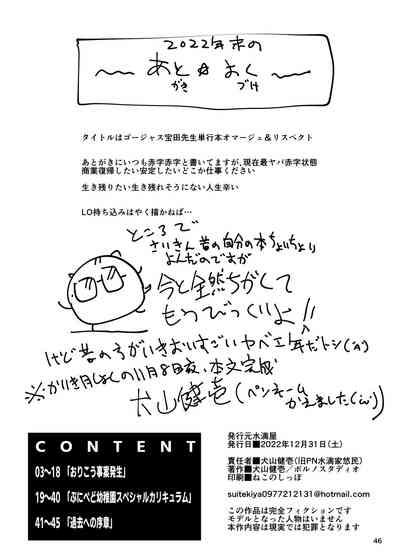 2022年末の
あと☆おく
がき づけ
タイトルはゴージャス宝田先生単行本オマージュ&リスペクト
あとがきにいつも赤字赤字と書いてますが、現在最ヤバ赤字状態
商業復帰したい安定したいどこか仕事ください
生き残りたい生き残れそうにない人生辛い
LO持ち込みはやく描かねば…
ところで
さいきん昔の自分の本ちょいちょい
よんだのですが
今と全然ちがくて
もうびっくりよ!!
けど昔の方がいきおいすごい
11月8日夜、本文完成
犬山健壱(ペンネーム
かえました
CONTENT
03〜18「おりこう事業発生」
19〜40「ぷにぺど幼稚園スペシャルカリキュラム」
41〜45「過去への序章」
発行元水滴屋
発行日■2022年12月31日(土)
責任者■犬山健壱(旧PN水滴家悠民)
著作■犬山健壱/ポルノスタディオ
印刷■ねこのしっぽ
suitekiya0977212131@hotmail.com
この作品は完全フィクションです
モデルとなった人物はいません
本作内容は現実では犯罪となります
46